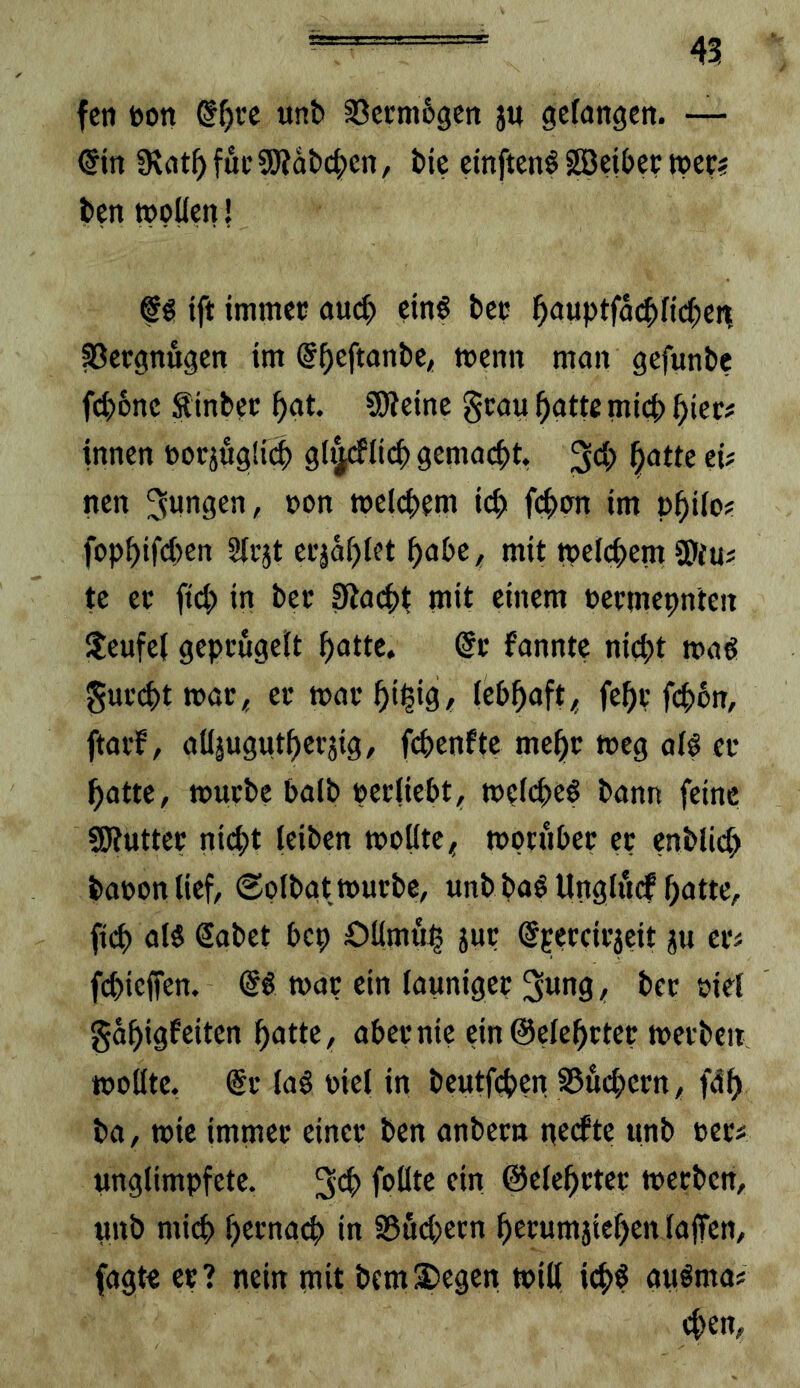 43
sen von Ehre und Vermögen zu gelangen. —
Ein Rath für Mädchen, die einstens Weiber wer⸗
den wollen!
Es ist immer auch eins der hauptsächlichen
Vergnügen im Ehestande, wenn man gesunde
schöne Kinder hat. Meine Frau hatte mich hier⸗
innen vorzüglich glücklich gemacht. Ich hatte ei⸗
nen Jungen, von welchem ich schon im philo⸗
sophischen Arzt erzählet habe, mit welchem Mu⸗
te er sich in der Nacht mit einem vermeynten
Teufel geprügelt hatte. Er kannte nicht was
Furcht war, er war hitzig, lebhaft, sehr schön,
stark, allzugutherzig, schenkte mehr weg als er
hatte, wurde bald verliebt, welches dann seine
Mutter nicht leiden wollte, worüber er endlich
davon lief, Soldat wurde, und das Unglück hatte,
sich als Cadet bey Ollmütz zur Exercirzeit zu er⸗
schiessen. Es war ein launiger Jung, der viel
Fähigkeiten hatte, aber nie ein Gelehrter werden
wollte. Er las viel in deutschen Büchern, säh
da, wie immer einer den andern neckte und ver⸗
unglimpfete. Ich sollte ein Gelehrter werden,
und mich hernach in Büchern herumziehen lassen,
sagte er? nein mit dem Degen will ichs ausma⸗
chen,